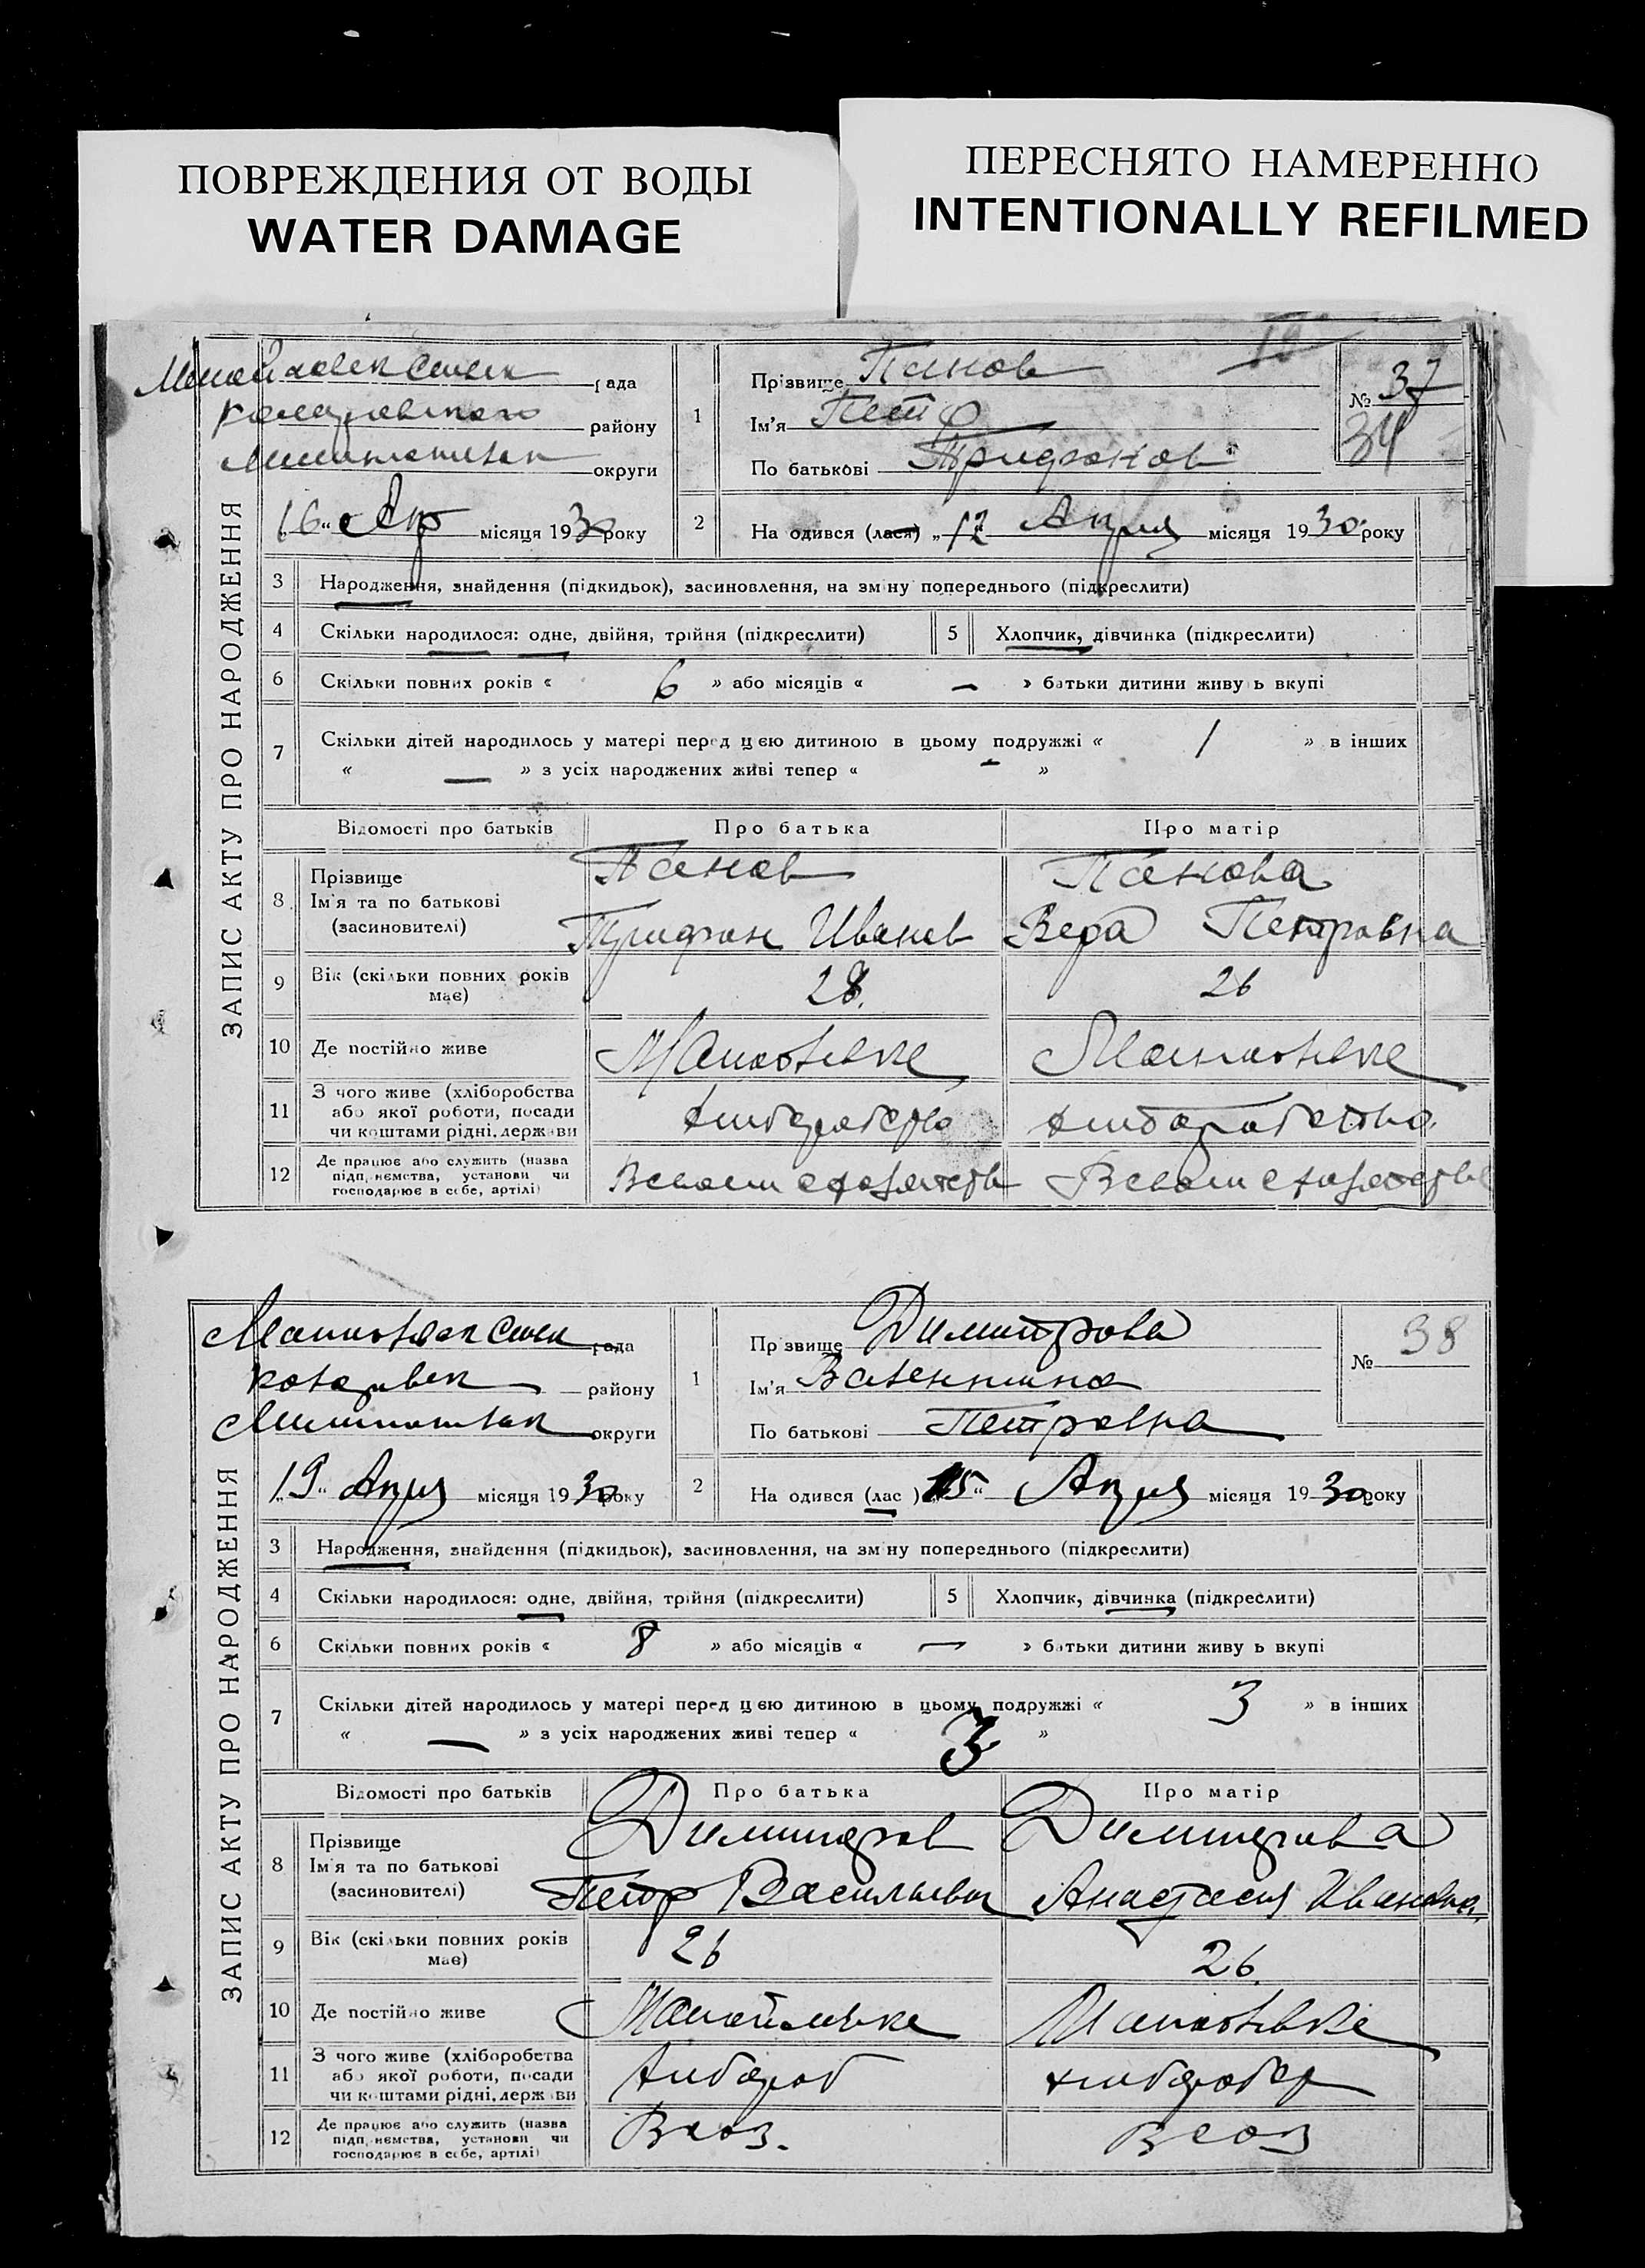 ПОВРЕЖДЕНИЯ ОТ ВОДЫ
WATER DAMAGE
ПЕРЕСНЯТО НАМЕРЕННО
INTENTIONALLY REFILMED
ЗАПИС АКТУ ПРО НАРОДЖЕННЯ
рада
району
округи
„16“ Апр місяця 1930 року
1
Прізвище Панов
Ім'я Петр
По батькові Трифонов
№ 37
34
2
На одився (лася) „12 Апреля місяця 1930 року
3 Народження, знайдення (підкидьок), засиновлення, на зміну попереднього (підкреслити)
4 Скільки народилося: одне, двійня, трійня (підкреслити) 5 Хлопчик, дівчинка (підкреслити)
6 Скільки повних років « 6 » або місяців « — » батьки дитини живу ь вкупі
7 Скільки дітей народилось у матері перед цією дитиною в цьому подружжі « 1 » в інших
« — » з усіх народжених живі тепер « - »
Відомості про батьків Про батька Про матір
8 Прізвище
Ім'я та по батькові
(засиновителі)
Панов
Трифон Иванов
Панова
Вера Петровна
9 Вік (скільки повних років має) 28. 26
10 Де постійно живе
11 З чого живе (хліборобства
або якої роботи, посади
чи коштами рідні, держави
12 Де працює або служить (назва
підприємства, установи чи
господарює в себе, артілі)
ЗАПИС АКТУ ПРО НАРОДЖЕННЯ
рада
району
округи
„19“ Апреля місяця 1930 року
1
Пр звище Димитрова
Ім'я Валентина
По батькові Петровна
№ 38
2
На одився (лас ) „15“ Апреля місяця 1930 року
3 Народження, знайдення (підкидьок), засиновлення, на зміну попереднього (підкреслити)
4 Скільки народилося: одне, двійня, трійня (підкреслити) 5 Хлопчик, дівчинка (підкреслити)
6 Скільки повних років « 8 » або місяців « — » батьки дитини живу ь вкупі
7 Скільки дітей народилось у матері перед цією дитиною в цьому подружжі « 3 » в інших
« — » з усіх народжених живі тепер « 3 »
Відомості про батьків Про батька Про матір
8 Прізвище
Ім'я та по батькові
(засиновителі)
Димитров
Петр Васильевич
Димитрова
Анастасия Ивановна
9 Вік (скільки повних років має) 26 26.
10 Де постійно живе
11 З чого живе (хліборобства
або якої роботи, посади
чи коштами рідні, держави
12 Де працює або служить (назва
підприємства, установи чи
господарює в себе, артілі)